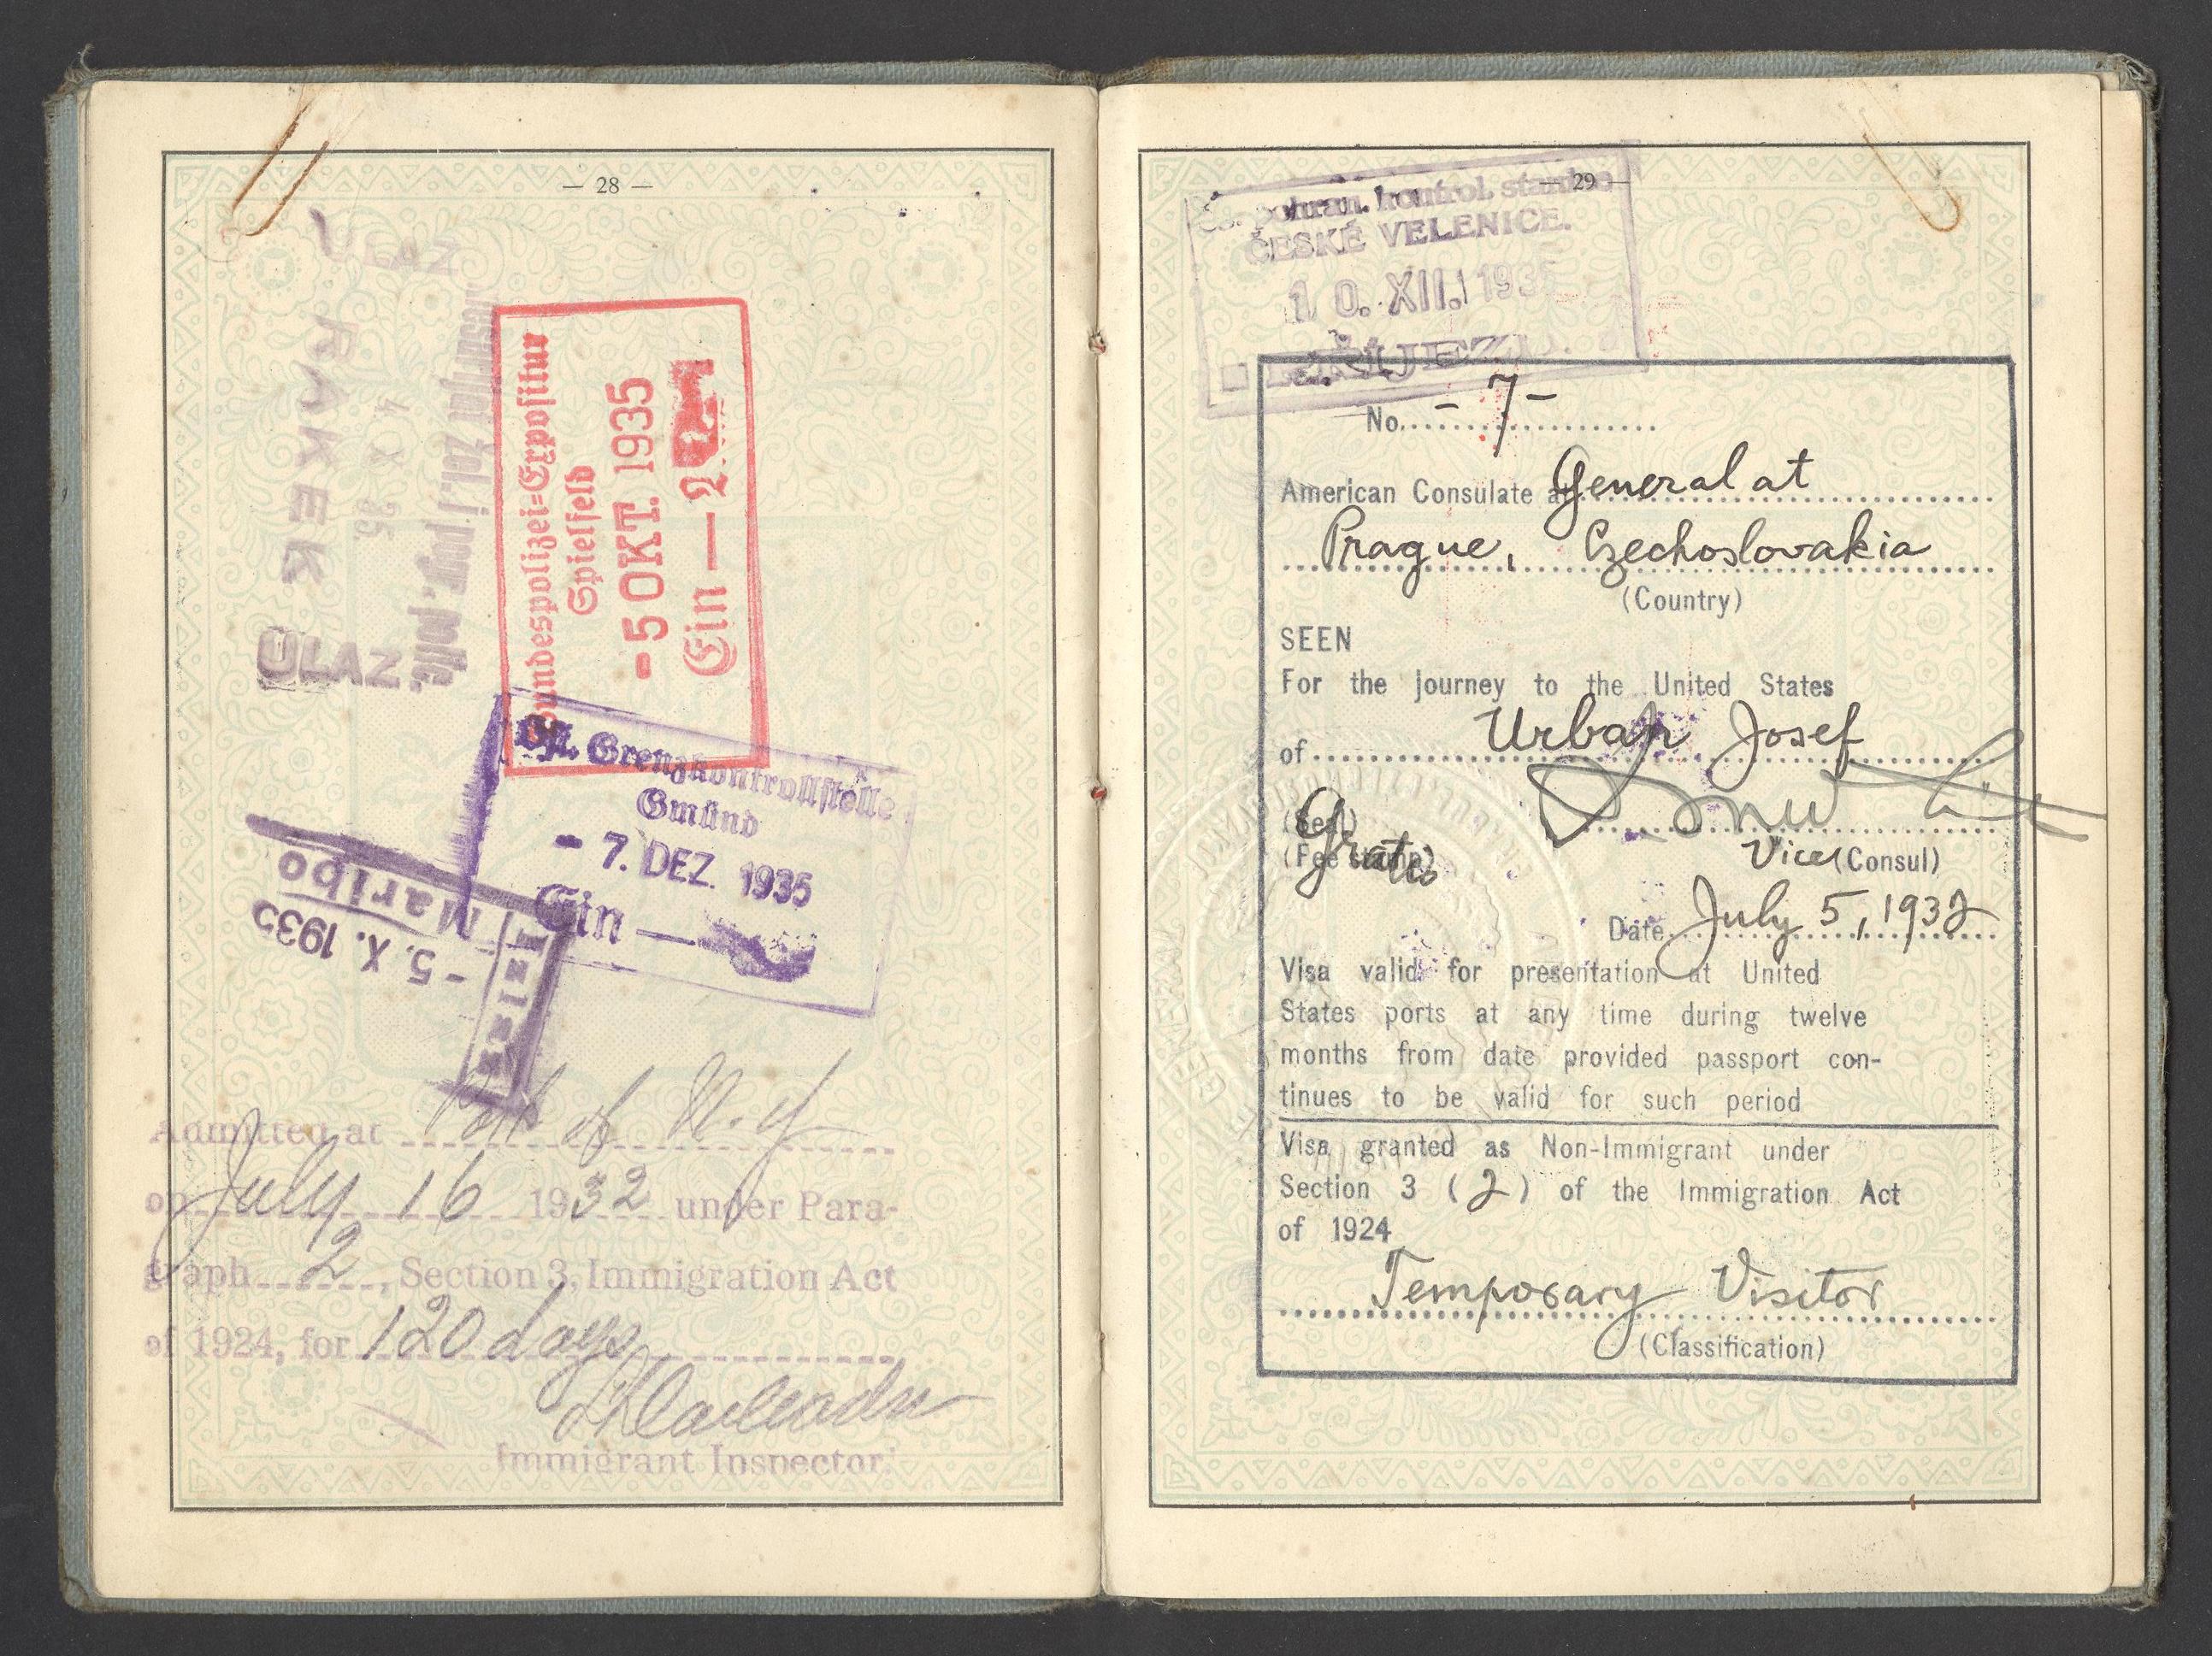 — 28 —
ULAZ
RAKEK
4 X 35
ULAZ.
Bundespolizei=Expositur
Spielfeld
- 5 OKT. 1935
Ein —
Grenzkontrollstelle
Gmünd
- 7. DEZ. 1935
Ein —
Maribo
- 5. X. 1935
Izlaz
Admitted at Port of N.Y.
on July 16 1932 under Para-
graph 2, Section 3, Immigration Act
of 1924, for 120 days
Immigrant Inspector.
— 29 —
Čs. pohran. kontrol. stanice
ČESKÉ VELENICE.
10. XII. 1935
PŘÍJEZD.
No. - 7 -
American Consulate at General at
Prague, Czechoslovakia
(Country)
SEEN
For the journey to the United States
of Urban Josef
(Seal)
Gratis
(Fee stamp)
Vice (Consul)
Date July 5, 1932
Visa valid for presentation at United
States ports at any time during twelve
months from date provided passport con-
tinues to be valid for such period
Visa granted as Non-Immigrant under
Section 3 (2) of the Immigration Act
of 1924
Temporary Visitor
(Classification)